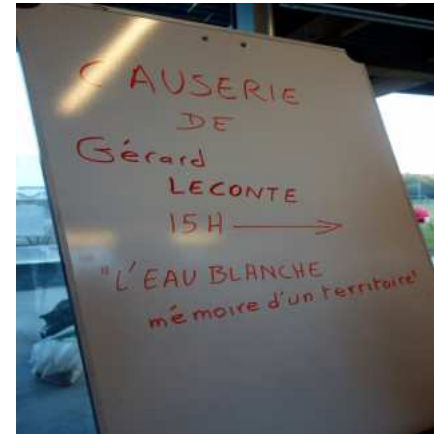 CAUSERIE
DE
Gérard
LECONTE
15H →
"L'EAU BLANCHE
mémoire d'un territoire"